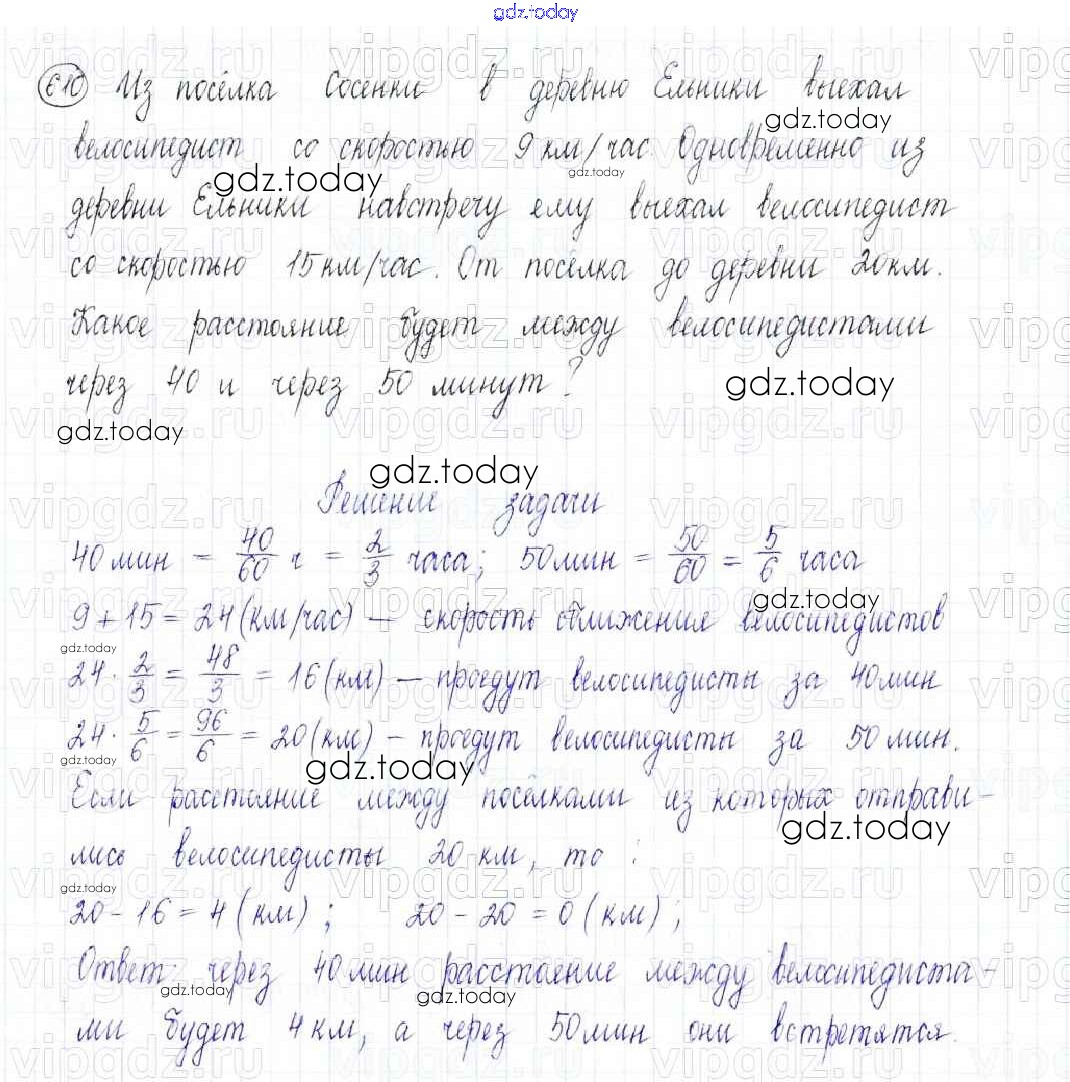 gdz.today
610 Из посёлка Сосенки в деревню Ельники выехал
gdz.today
велосипедист со скоростью 9 км/час. Одновременно из
gdz.today gdz.today
деревни Ельники навстречу ему выехал велосипедист
со скоростью 15 км/час. От посёлка до деревни 20 км.
Какое расстояние будет между велосипедистами
через 40 и через 50 минут?
gdz.today
gdz.today
gdz.today
Решение задачи
40 мин = 40/60 ч = 2/3 часа; 50 мин = 50/60 = 5/6 часа
gdz.today
9 + 15 = 24 (км/час) – скорость сближения велосипедистов
gdz.today
24 · 2/3 = 48/3 = 16 (км) – проедут велосипедисты за 40 мин
24 · 5/6 = 96/6 = 20 (км) – проедут велосипедисты за 50 мин.
gdz.today
gdz.today
Если расстояние между посёлками из которых отправи-
gdz.today
лись велосипедисты 20 км, то :
gdz.today
20 - 16 = 4 (км) ; 20 - 20 = 0 (км) ;
Ответ через 40 мин расстояние между велосипедиста-
gdz.today gdz.today
ми будет 4 км, а через 50 мин они встретятся.
vipgdz.ru